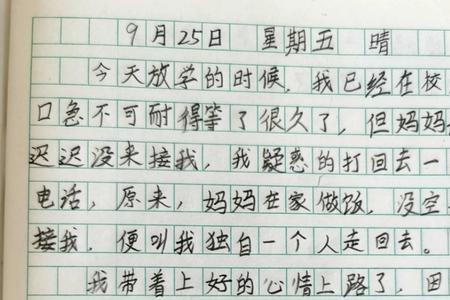 9月25日 星期五 晴
今天放学的时候，我已经在校
口急不可耐得等了很久了，但妈妈
迟迟没来接我，我疑惑的打回去一
电话，原来，妈妈在家做饭，没空
接我，便叫我独自一个人走回去。
我带着上好的心情上路了，田